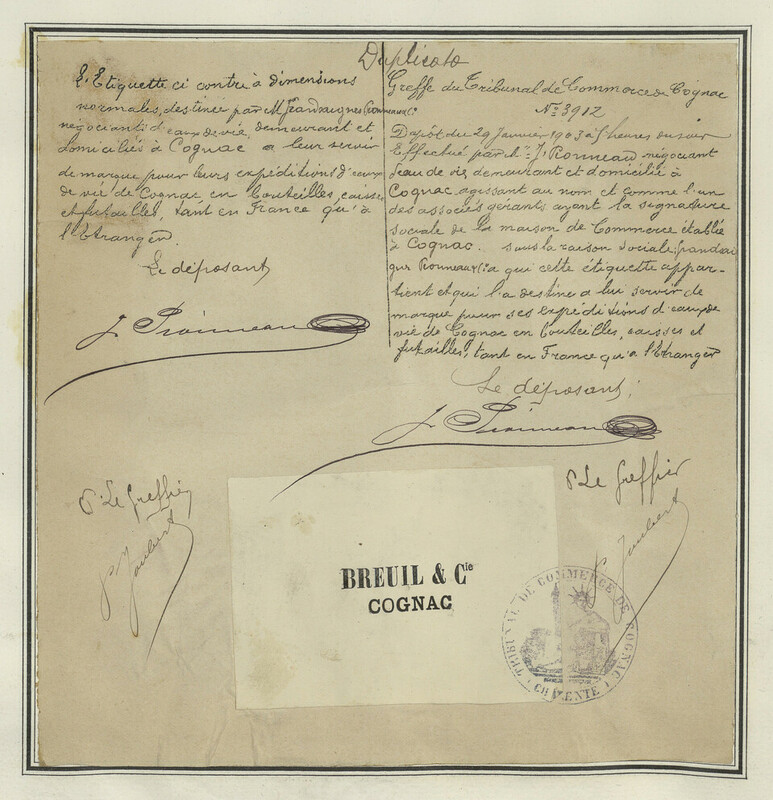 Duplicata
L'Etiquette ci contre à dimensions
normales, destinée par M Jrandsaignes Ronneaux & Cie
négociants d'eaux de vie, demeurant et
domiciliés à Cognac a leur servir
de marque pour leurs expéditions d'eaux
de vie de Cognac en bouteilles, caisses
et futailles, tant en France qu'à
l'Etranger.
Le déposant
Greffe du Tribunal de Commerce de Cognac
No 3912
Dépôt du 29 Janvier 1903 à 5 heures du soir
Effectué par Mr J. Ronneau négociant
d'eau de vie demeurant et domicilié à
Cognac, agissant au nom et comme l'un
des associés gérants ayant la signature
sociale de la maison de Commerce établie
à Cognac. sous la raison sociale:
Ronneaux & Cia qui cette étiquette appar-
tient et qui l'a destine a lui servir de
marque pour ses expéditions d'eaux de
vie de Cognac en bouteilles, caisses et
futailles, tant en France qu'a l'Etranger
Le déposant,
P. Le Greffier
P. Joubert
P. Le Greffier
P. Joubert
BREUIL & Cie
COGNAC
TRIBUNAL DE COMMERCE DE COGNAC
CHARENTE